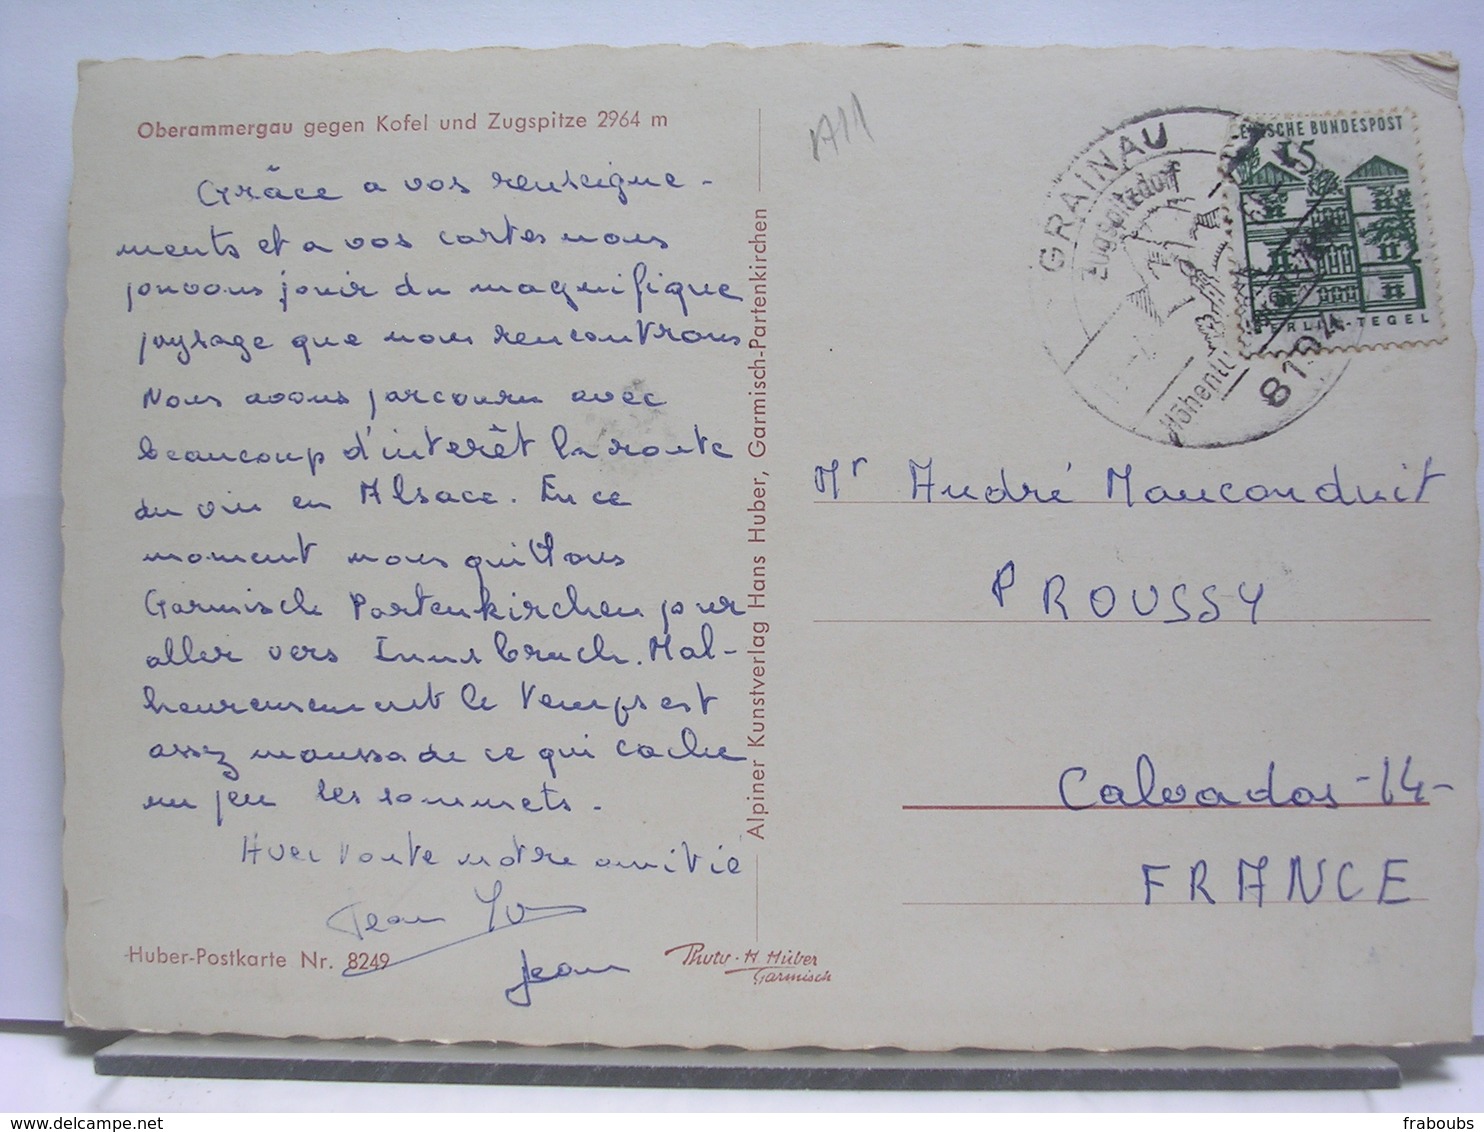 Oberammergau gegen Kofel und Zugspitze 2964 m
Grâce a vos renseigne-
ments et a vos cartes nous
pouvons jouir du magnifique
paysage que nous rencontrons
Nous avons parcouru avec
beaucoup d'interêt la route
du vin en Alsace. En ce
moment nous quittons
Garmisch Partenkirchen pour
aller vers Innsbruch. Mal-
heureusement le temps est
assez maussade ce qui cache
un peu les sommets.
Avec toute notre amitié
Jean Yv
Jean
Huber-Postkarte Nr. 8249
Photo - H. Huber
Garmisch
Alpiner Kunstverlag Hans Huber, Garmisch-Partenkirchen
A11
GRAINAU
Zugspitzdorf
8104
DEUTSCHE BUNDESPOST
15
BERLIN-TEGEL
Mr André Mauconduit
PROUSSY
Calvados -14-
FRANCE
fraboubs